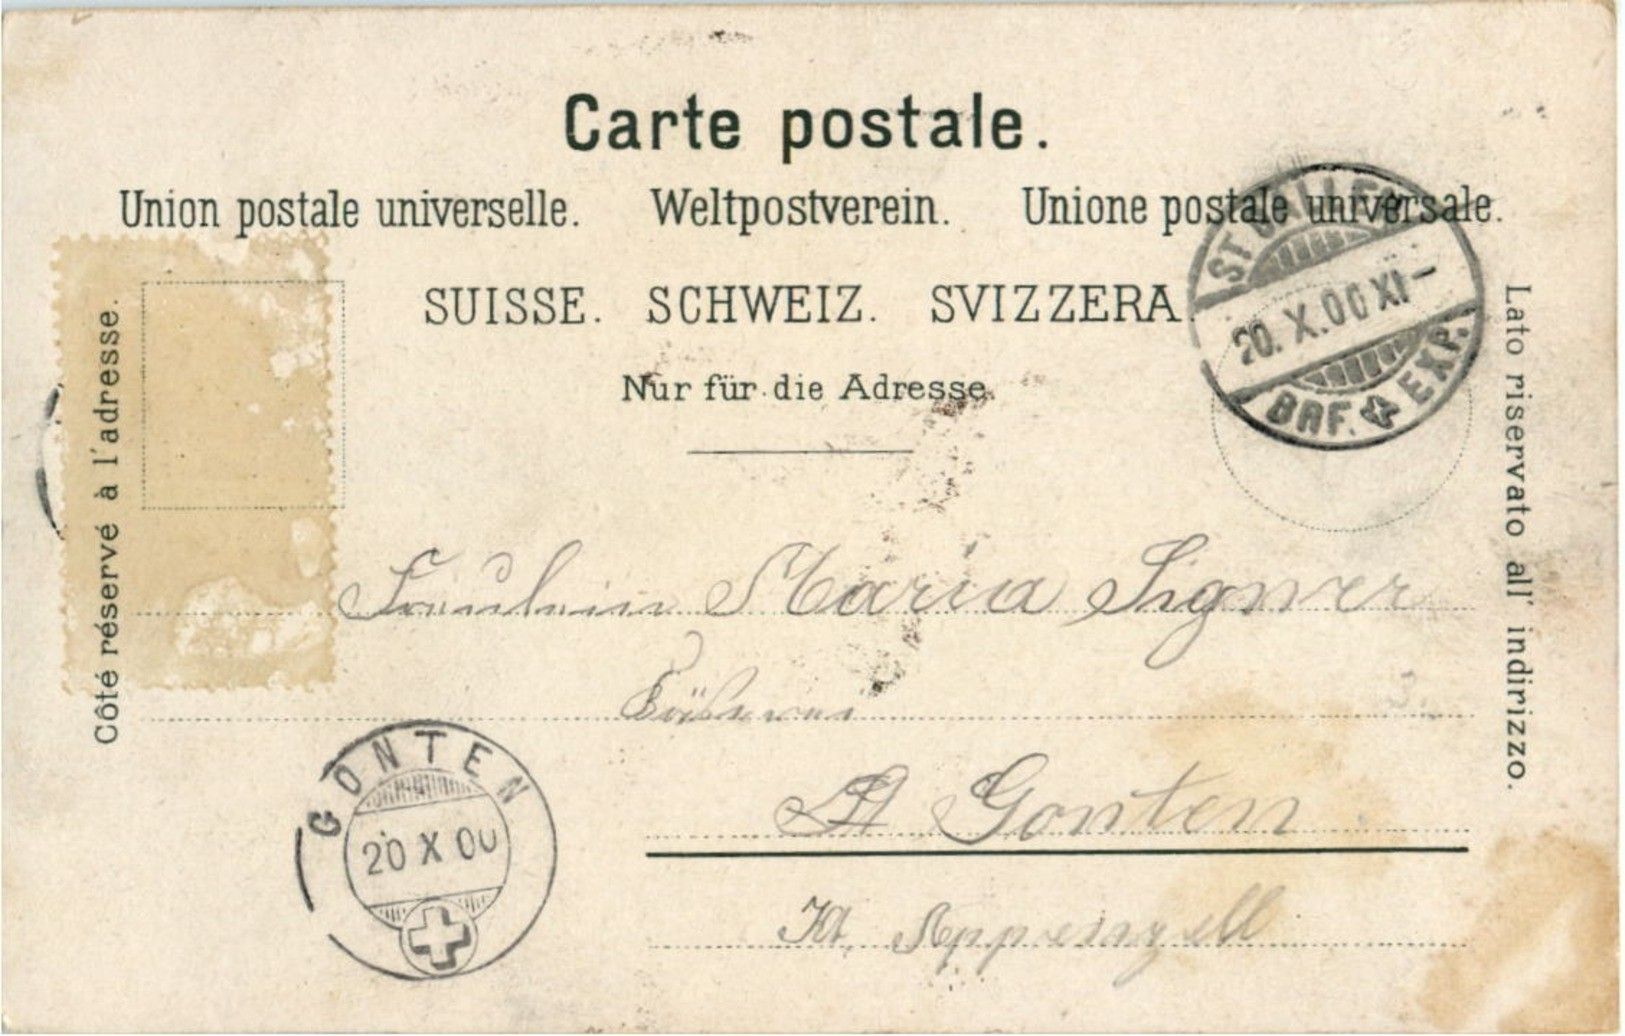 Carte postale.
Union postale universelle. Weltpostverein. Unione postale universale.
SUISSE. SCHWEIZ. SVIZZERA.
Nur für die Adresse.
Côté réservé à l'adresse.
Lato riservato all' indirizzo.
ST. GALLEN
20. X. 00 XI –
BRF. EXP.
Fräulein Maria Signer
Gonten
Kt. Appenzell
GONTEN
20 X 00